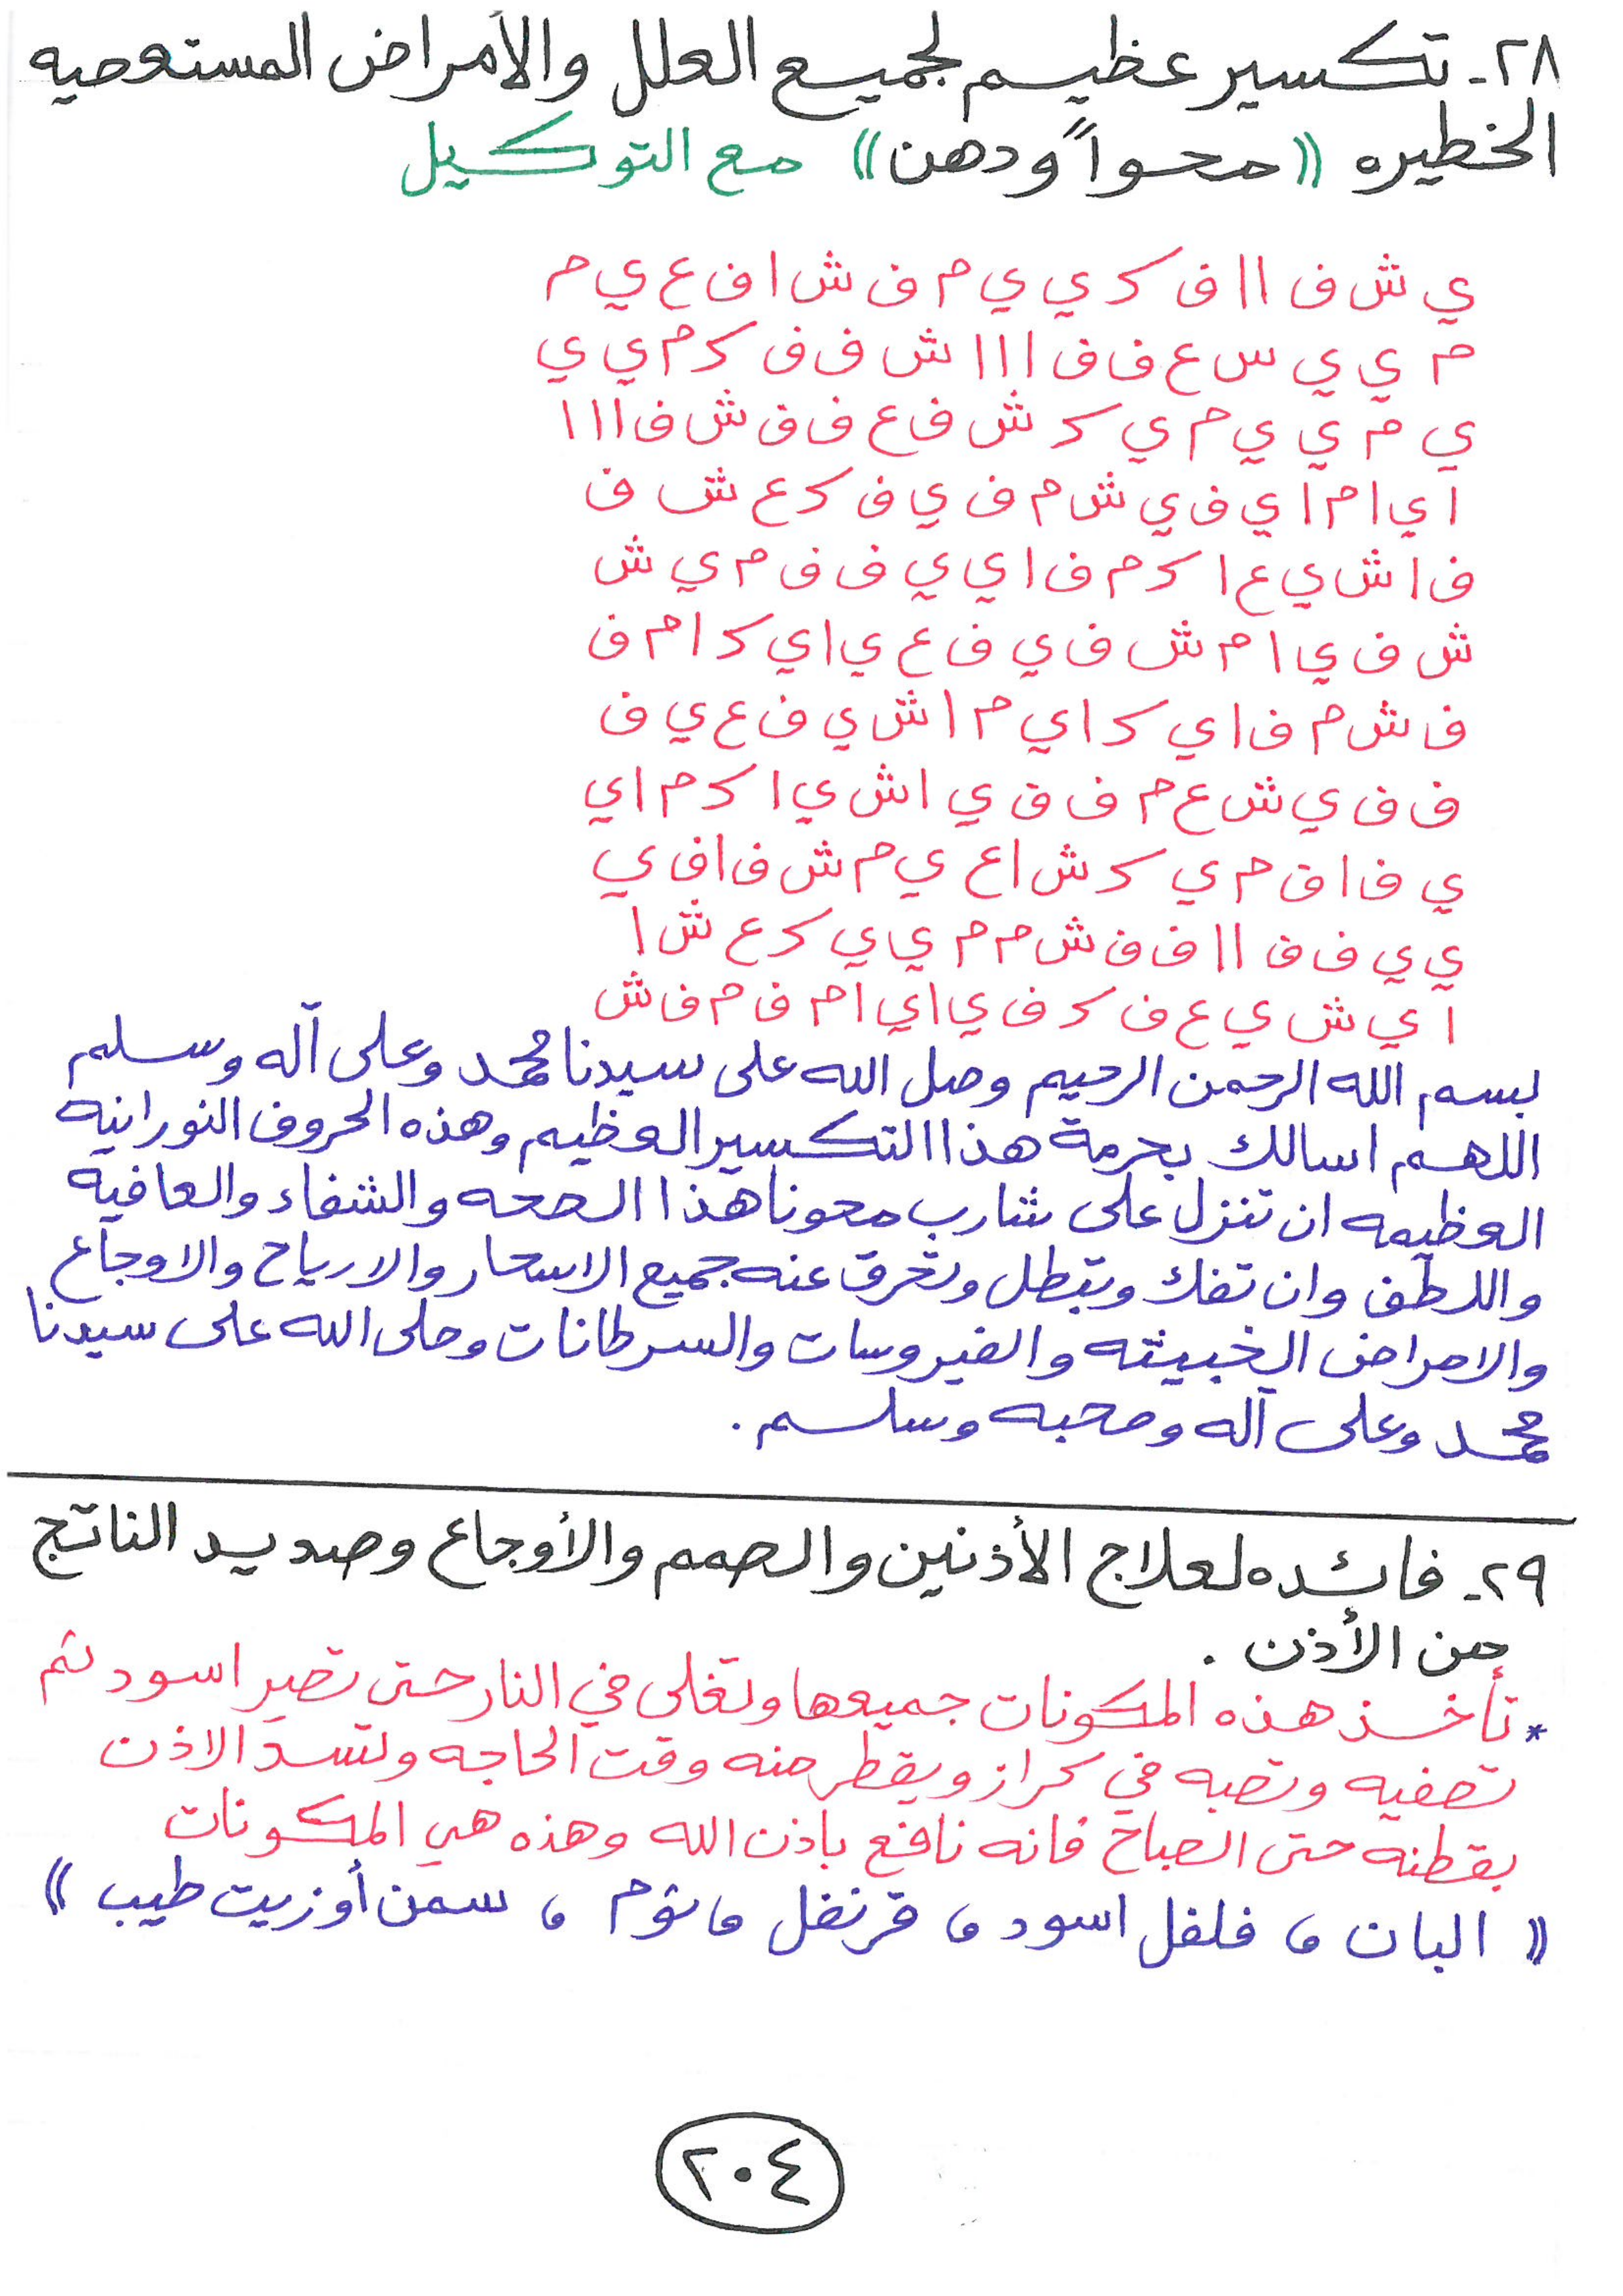 ٢٨- تكسير عظيم لجميع العلل والأمراض المستعصيه
الخطيره ((محواً ودهن)) مع التوكيل
ي ش ف ا ا ف ك ي ي م ف ش ا ف ع ي م
م ي ي س ع ف ف ا ا ا ش ف ف ك م ي ي
ي م ي ي م ي ك ش ف ع ف ف ش ف ا ا ا
ا ي ا م ا ي ف ي ش م ف ي ف ك ع ش ف
ف ا ش ي ع ا ك م ف ا ي ي ف ف م ي ش
ش ف ي ا م ش ف ي ف ع ي ا ي ك ا م ف
ف ش م ف ا ي ك ا ي م ا ش ي ف ع ي ف
ف ف ي ش ع م ف ف ي ا ش ي ا ك م ا ي
ي ف ا ف م ي ك ش ا ع ي م ش ف ا ف ي
ي ي ف ف ا ا ف ف ش م م ي ي ك ع ش ا
ا ي ش ي ع ف ك ف ي ا ي ا م ف م ف ش
بسم الله الرحمن الرحيم وصل الله على سيدنا محمد وعلى آله وسلم
اللهم اسالك بحرمة هذا التكسير العظيم وهذه الحروف النورانيه
العظيمه ان تنزل على شارب محونا هذا الصحه والشفاء والعافيه
واللطف وان تفك وتبطل وتحرق عنه جميع الاسحار والارياح والاوجاع
والامراض الخبيثه والفيروسات والسرطانات وصلى الله على سيدنا
محمد وعلى آله وصحبه وسلم .
٢٩- فائده لعلاج الأذنين والصمم والأوجاع وصديد الناتج
من الأذن .
* تأخذ هذه المكونات جميعها وتغلى في النار حتى تصير اسود ثم
تصفيه وتصبه في كراز ويقطر منه وقت الحاجه وتسد الاذن
بقطنه حتى الصباح فانه نافع باذن الله وهذه هي المكونات
(( البان ، فلفل اسود ، قرنفل ، ثوم ، سمن أو زيت طيب ))
٢٠٤